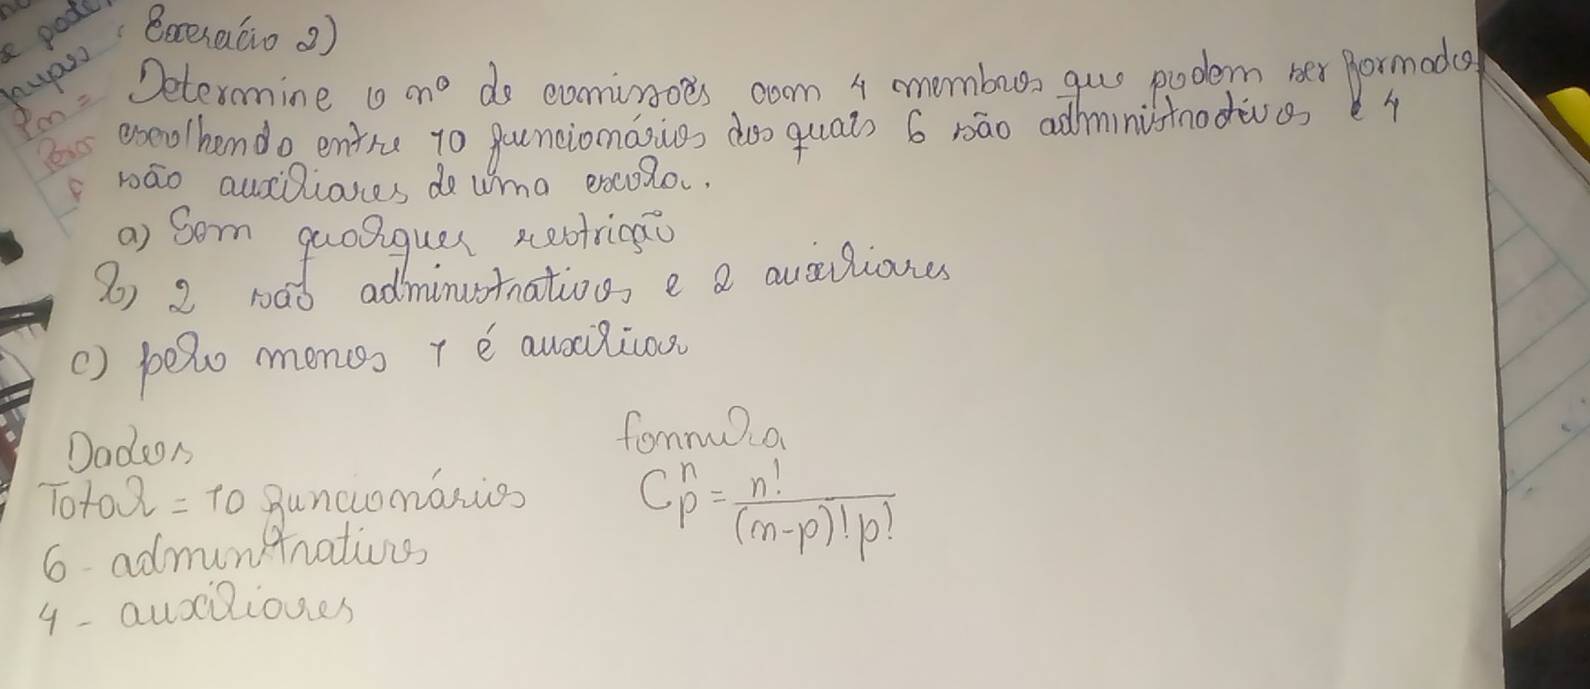 Exercício 2)
Determine o nº de comissões com 4 membros que podem ser formados
escolhendo entre 10 funcionários dos quais 6 são administrativos e 4
são auxiliares de uma escola.
a) Sem qualquer restrição
b) 2 são administrativos e 2 auxiliares
c) pelo menos 1 é auxiliar
Dados
Total = 10 funcionários
6 - administrativos
4 - auxiliares
formula
C_p^n = n! / (n-p)! p!